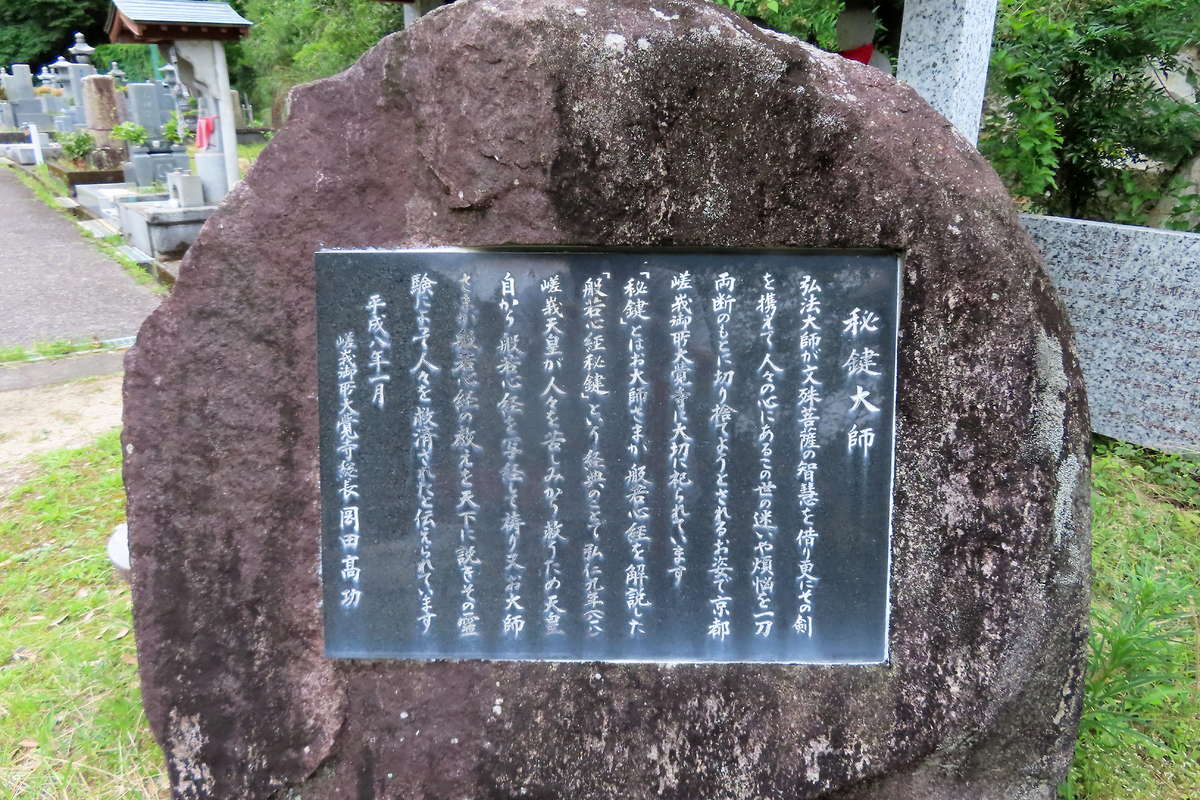 秘鍵大師
弘法大師が文殊菩薩の智慧を借り更にその剣
を携えて人々の心にあるこの世の迷いや煩悩を一刀
両断のもとに切り捨てようとされるお姿で京都
嵯峨御所大覚寺に大切に祀られています
「秘鍵」とはお大師さまが般若心経を解説した
「般若心経秘鍵」という経典のことで弘仁九年(八一八)
嵯峨天皇が人々を苦しみから救うため天皇
自から般若心経を写経し祷り又お大師
さまが般若心経の教えを天下に説きその霊
験によって人々を救済されたと伝えられています
平成八年一月
嵯峨御所大覚寺 長 岡田高功